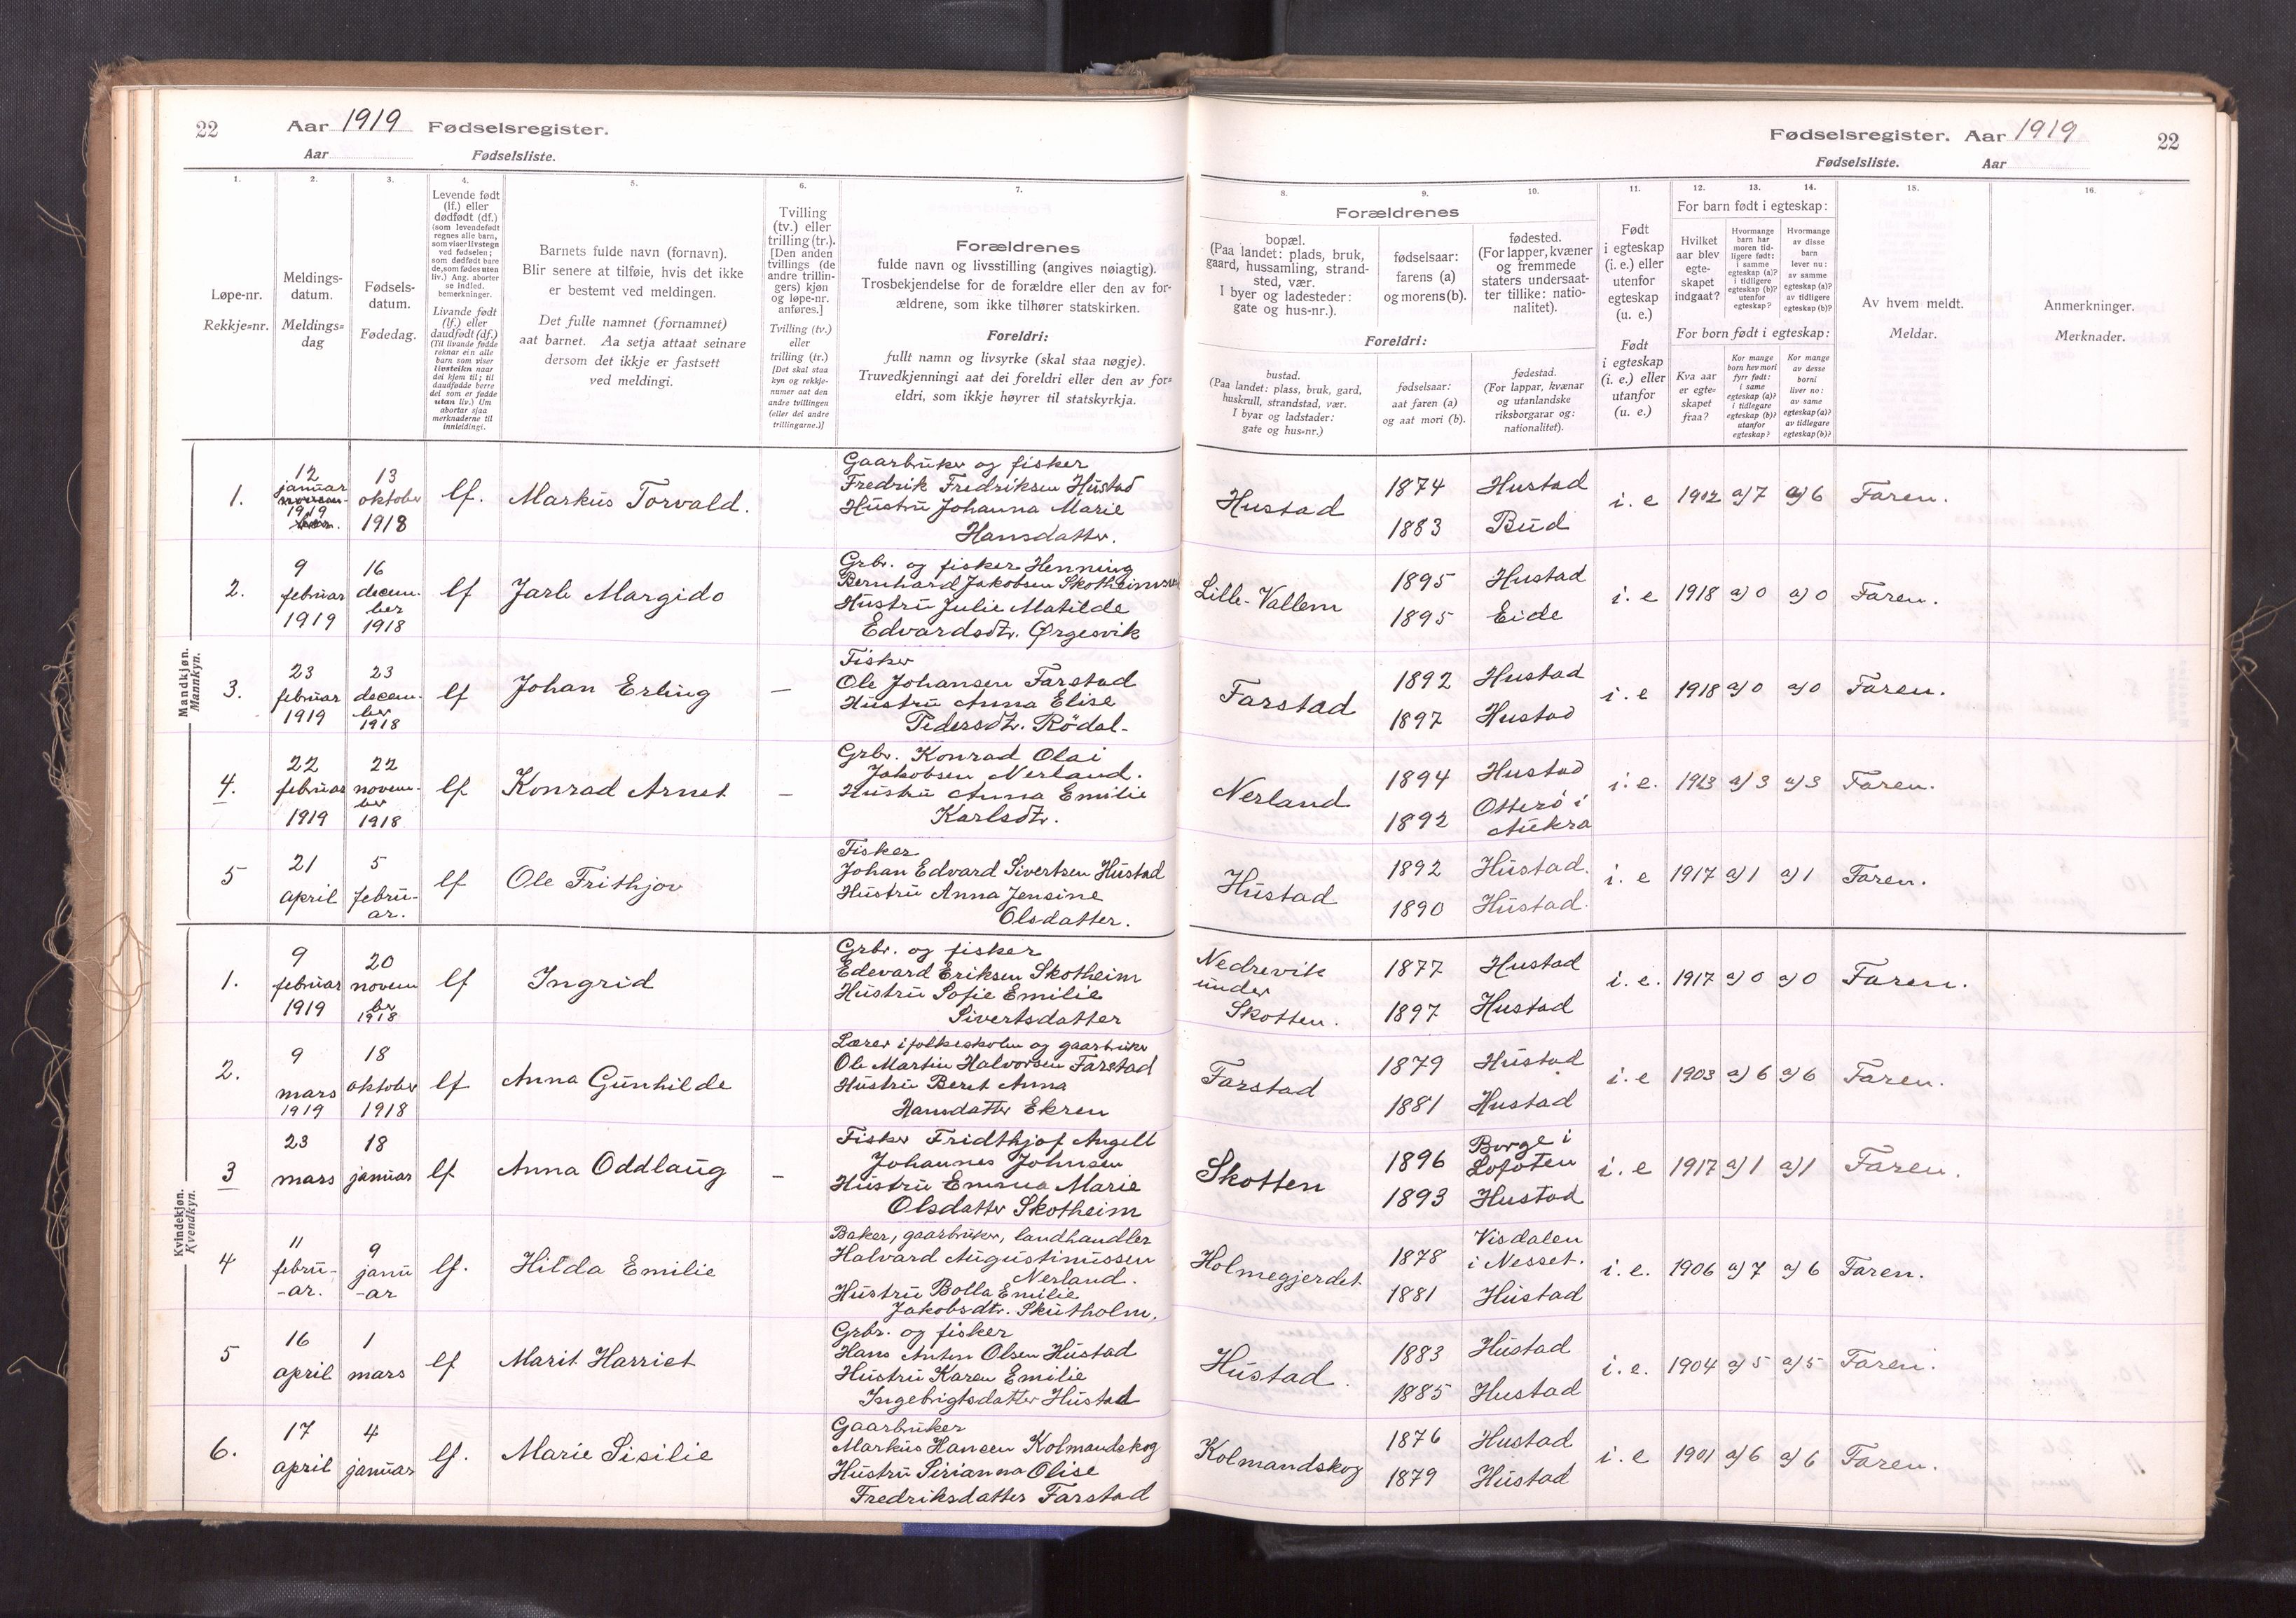 22 Aar 1919 Fødselsregister.
Aar Fødselsliste.
1. 2. 3. 4. 5. 6. 7.
Løpe-nr.
Rekkje=nr.
Meldings-
datum.
Meldings=
dag
Fødsels-
datum.
Fødedag.
Levende født
(lf.) eller
dødfødt (df.)
(som levendefødt
regnes alle barn,
som viser livstegn
ved fødselen;
som dødfødt bare
de, som fødes uten
liv.) Ang. aborter
se indled.
bemerkninger.
Livande født
(lf.) eller
daudfødt (df.)
(Til livande fødde
reknar ein alle
barn som viser
livsteikn naar
dei kjem til; til
daudfødde berre
dei som er fødde
utan liv.) Um
abortar sjaa
merknaderne til
innleidingi.
Barnets fulde navn (fornavn).
Blir senere at tilføie, hvis det ikke
er bestemt ved meldingen.
Det fulle namnet (fornamnet)
aat barnet. Aa setja attaat seinare
dersom det ikkje er fastsett
ved meldingi.
Tvilling
(tv.) eller
trilling (tr.).
[Den anden
tvillings (de
andre trillin-
gers) kjøn
og løpe-nr.
anføres.]
Tvilling (tv.)
eller
trilling (tr.)
[Det skal staa
kyn og rekkje-
numer aat den
andre tvillingen
(eller dei andre
trillingarne.)]
Forældrenes
fulde navn og livsstilling (angives nøiagtig).
Trosbekjendelse for de forældre eller den av for-
ældrene, som ikke tilhører statskirken.
Foreldri:
fullt namn og livsyrke (skal staa nøgje).
Truvedkjenningi aat dei foreldri eller den av for=
eldri, som ikkje høyrer til statskyrkja.
Mandkjøn.
Mannkyn.
1.
12
januar
1919
13
oktober
1918
lf.
Markus Torvald.
Gaarbruker og fisker
Fredrik Fredriksen Hustad
Hustru Johanna Marie
Hansdatter.
2.
9
februar
1919
16
decem-
ber
1918
lf
Jarle Margido
Grbr. og fisker Henning
Bernhard Jakobsen Skotheimsvik
Hustru Julie Matilde
Edvardsdtr. Ørgesvik
3.
23
februar
1919
23
decem-
ber
1918
lf
Johan Erling
—
Fisker
Ole Johansen Farstad
Hustru Anna Elise
Pedersdtr. Rödal-
4.
22
februar
1919
22
novem-
ber
1918
lf
Konrad Arnet
—
Grbr. Konrad Olai
Jakobsen Nerland.
Hustru Anna Emilie
Karlsdtr.
5
21
april
5
febru-
ar.
lf
Ole Frithjov
Fisker
Johan Edvard Sivertsen Hustad
Hustru Anna Jensine
Olsdatter.
Kvindekjøn.
Kvendkyn.
1.
9
februar
1919
20
novem
ber
1918
lf
Ingrid
Grbr. og fisker
Edevard Eriksen Skotheim
Hustru Sofie Emilie
Sivertsdatter
2.
9
mars
1919
18
oktober
1918
lf
Anna Gunhilde
Lærer i folkeskolen og gaarbruker
Ole Martin Halvorsen Farstad
Hustru Beret Anna
Hansdatter Ekren
3
23
mars
18
januar
lf
Anna Oddlaug
—
Fisker Fridthjof Angell
Johannes Johnsen
Hustru Emma Marie
Olsdatter Skotheim
4
11
febru-
-ar.
9
janu
-ar
lf.
Hilda Emilie
Baker, gaarbruker, landhandler
Halvard Augustinussen
Nerland.
Hustru Bolla Emilie
Jakobsdtr. Skutholm.
5
16
april
1
mars
lf
Marit Harriet
Grbr. og fisker
Hans Anton Olsen Hustad
Hustru Karen Emilie
Ingebrigtsdatter Hustad
6.
17
april
4
januar
lf.
Marie Sisilie
Gaarbruker
Markus Hansen Kolmandskog
Hustru Sirianna Olise
Fredriksdatter Farstad
Fødselsregister. Aar 1919 22
Fødselsliste. Aar
8. 9. 10. 11. 12. 13. 14. 15. 16.
Forældrenes
bopæl.
(Paa landet: plads, bruk,
gaard, hussamling, strand-
sted, vær.
I byer og ladesteder:
gate og hus-nr.).
fødselsaar:
farens (a)
og morens (b).
fødested.
(For lapper, kvæner
og fremmede
staters undersaat-
ter tillike: natio-
nalitet).
Foreldri:
bustad.
(Paa landet: plass, bruk, gard,
huskrull, strandstad, vær.
I byar og ladstader:
gate og hus=nr.)
fødselsaar:
aat faren (a)
og aat mori (b).
fødestad.
(For lappar, kvænar
og utanlandske
riksborgarar og:
nationalitet).
Født
i egteskap
(i. e.) eller
utenfor
egteskap
(u. e.)
Født
i egteskap
(i. e.) eller
utanfor
(u. e.)
For barn født i egteskap:
Hvilket
aar blev
egte-
skapet
indgaat?
Hvormange
barn har
moren tid-
ligere født:
i samme
egteskap (a)?
i tidligere
egteskap (b)?
utenfor
egteskap?
Hvormange
av disse
barn
lever nu:
av samme
egteskap (a)?
av tidligere
egteskap (b)?
For born født i egteskap:
Kva aar
er egte=
skapet
fraa?
Kor mange
born hev mori
fyrr født:
i same
egteskap (a)?
i tidlegare
egteskap (b)?
utanfor
egteskap?
Kor mange
av desse
borni
liver no:
av same
egteskap (a)?
av tidlegare
egteskap (b)?
Av hvem meldt.
Meldar.
Anmerkninger.
Merknader.
Hustad
1874 Hustad
1883 Bud
i. e 1902 a) 7 a) 6 Faren.
Lille-Vallem
1895 Hustad
1895 Eide
i. e 1918 a) 0 a) 0 Faren.
Farstad
1892 Hustad
1897 Hustad
i. e 1918 a) 0 a) 0 Faren.
Nerland
1894 Hustad
1892 Otterö i
Aukra
i. e. 1913 a) 3 a) 3 Faren.
Hustad
1892 Hustad.
1890 Hustad.
i. e 1917 a) 1 a) 1 Faren.
Nedrevik
under
Skotten.
1877 Hustad
1897 Hustad
i. e. 1917 a) 0 a) 0 Faren.
Farstad
1879 Hustad
1881 Hustad
i. e 1903 a) 6 a) 6 Faren.
Skotten
1896 Borge i
Lofoten
1893 Hustad
i. e 1917 a) 1 a) 1 Faren.
Holmegjerdet
1878 Visdalen
i Nesset.
1881 Hustad
i. e. 1906 a) 7 a) 6 Faren.
Hustad.
1883 Hustad
1885 Hustad
i. e. 1904 a) 5 a) 5 Faren.
Kolmandskog
1876 Hustad
1879 Hustad
i. e 1901 a) 6 a) 6 Faren.